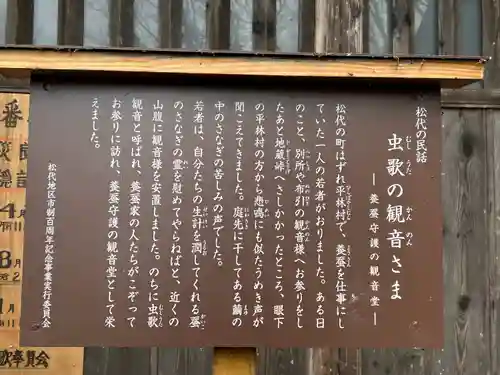 松代の民話
虫歌の観音さま
むし うた かん のん
―養蚕守護の観音堂―
松代の町はずれ平林村で、養蚕を仕事にし
ていた一人の若者がおりました。ある日
のこと、別所や布引の観音様へお参りをし
たあと地蔵峠へさしかかったところ、眼下
の平林村の方から悲鳴にも似たうめき声が
聞こえてきました。庭先に干してある繭の
中のさなぎの苦しみの声でした。
若者は、自分たちの生計を潤してくれる蚕
のさなぎの霊を慰めてやらねばと、近くの
山腹に観音様を安置しました。のちに虫歌
観音と呼ばれ、養蚕家の人たちがこぞって
お参りに訪れ、養蚕守護の観音堂として栄
えました。
松代地区市制百周年記念事業実行委員会
奉賛会